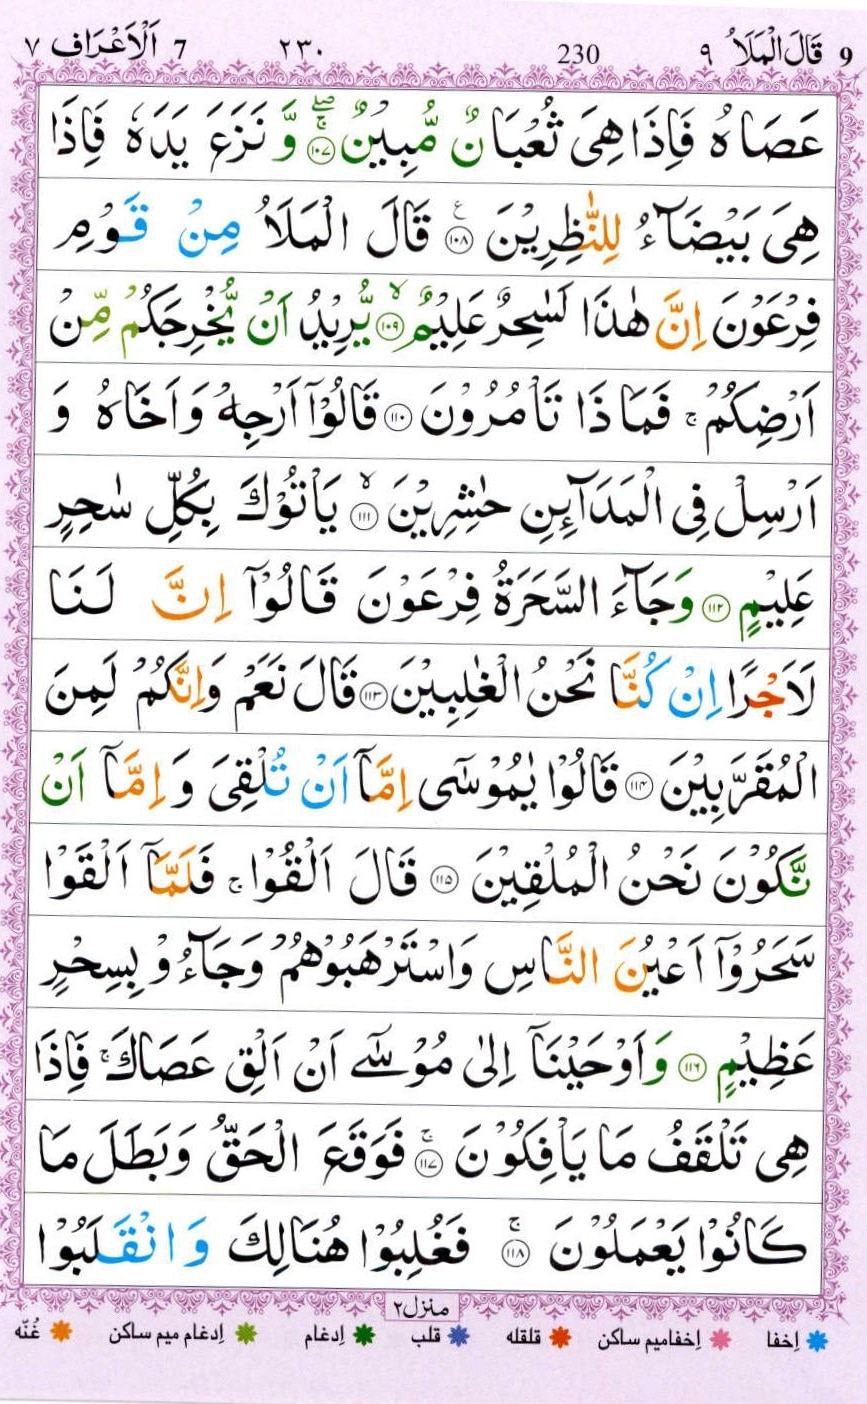 9 قَالَ الْمَلَاُ ٩ 230 ٢٣٠ 7 اَلْاَعْرَاف ٧
عَصَاهُ فَاِذَا هِیَ ثُعْبَانٌ مُّبِیْنٌ ۚۖ ﴿۱۰۷﴾ وَّ نَزَعَ یَدَهٗ فَاِذَا
هِیَ بَیْضَآءُ لِلنّٰظِرِیْنَ ﴿۱۰۸﴾ ع قَالَ الْمَلَاُ مِنْ قَوْمِ
فِرْعَوْنَ اِنَّ هٰذَا لَسٰحِرٌ عَلِیْمٌ ۙ﴿۱۰۹﴾ یُّرِیْدُ اَنْ یُّخْرِجَكُمْ مِّنْ
اَرْضِكُمْ ۚ فَمَا ذَا تَاْمُرُوْنَ ﴿۱۱۰﴾ قَالُوْۤا اَرْجِهْ وَ اَخَاهُ وَ
اَرْسِلْ فِی الْمَدَآىِٕنِ حٰشِرِیْنَ ۙ﴿۱۱۱﴾ یَاْتُوْكَ بِكُلِّ سٰحِرٍ
عَلِیْمٍ ﴿۱۱۲﴾ وَ جَآءَ السَّحَرَةُ فِرْعَوْنَ قَالُوْۤا اِنَّ لَنَا
لَاَجْرًا اِنْ كُنَّا نَحْنُ الْغٰلِبِیْنَ ﴿۱۱۳﴾ قَالَ نَعَمْ وَ اِنَّكُمْ لَمِنَ
الْمُقَرَّبِیْنَ ﴿۱۱۴﴾ قَالُوْا یٰمُوْسٰۤی اِمَّاۤ اَنْ تُلْقِیَ وَ اِمَّاۤ اَنْ
نَّكُوْنَ نَحْنُ الْمُلْقِیْنَ ﴿۱۱۵﴾ قَالَ اَلْقُوْا ۚ فَلَمَّاۤ اَلْقَوْا
سَحَرُوْۤا اَعْیُنَ النَّاسِ وَ اسْتَرْهَبُوْهُمْ وَ جَآءُوْ بِسِحْرٍ
عَظِیْمٍ ﴿۱۱۶﴾ وَ اَوْحَیْنَاۤ اِلٰی مُوْسٰۤی اَنْ اَلْقِ عَصَاكَ ۚ فَاِذَا
هِیَ تَلْقَفُ مَا یَاْفِكُوْنَ ۚ﴿۱۱۷﴾ فَوَقَعَ الْحَقُّ وَ بَطَلَ مَا
كَانُوْا یَعْمَلُوْنَ ۚ﴿۱۱۸﴾ فَغُلِبُوْا هُنَالِكَ وَ انْقَلَبُوْا
منزل٢
اِخفا اِخفامیم ساکن قلقله قلب اِدغام اِدغام میم ساکن غُنّه